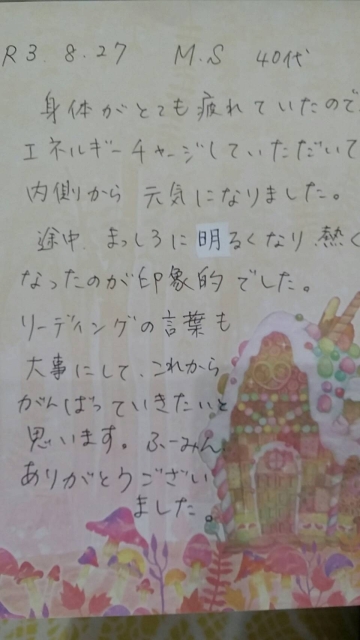 R3 8.27 M.S 40代
身体がとても疲れていたので
エネルギーチャージしていただいて
内側から 元気になりました。
途中 まっしろに明るくなり 熱く
なったのが印象的でした。
リーディングの言葉も
大事にして、これから
がんばっていきたいと
思います。ふーみん
ありがとうござい
ました。